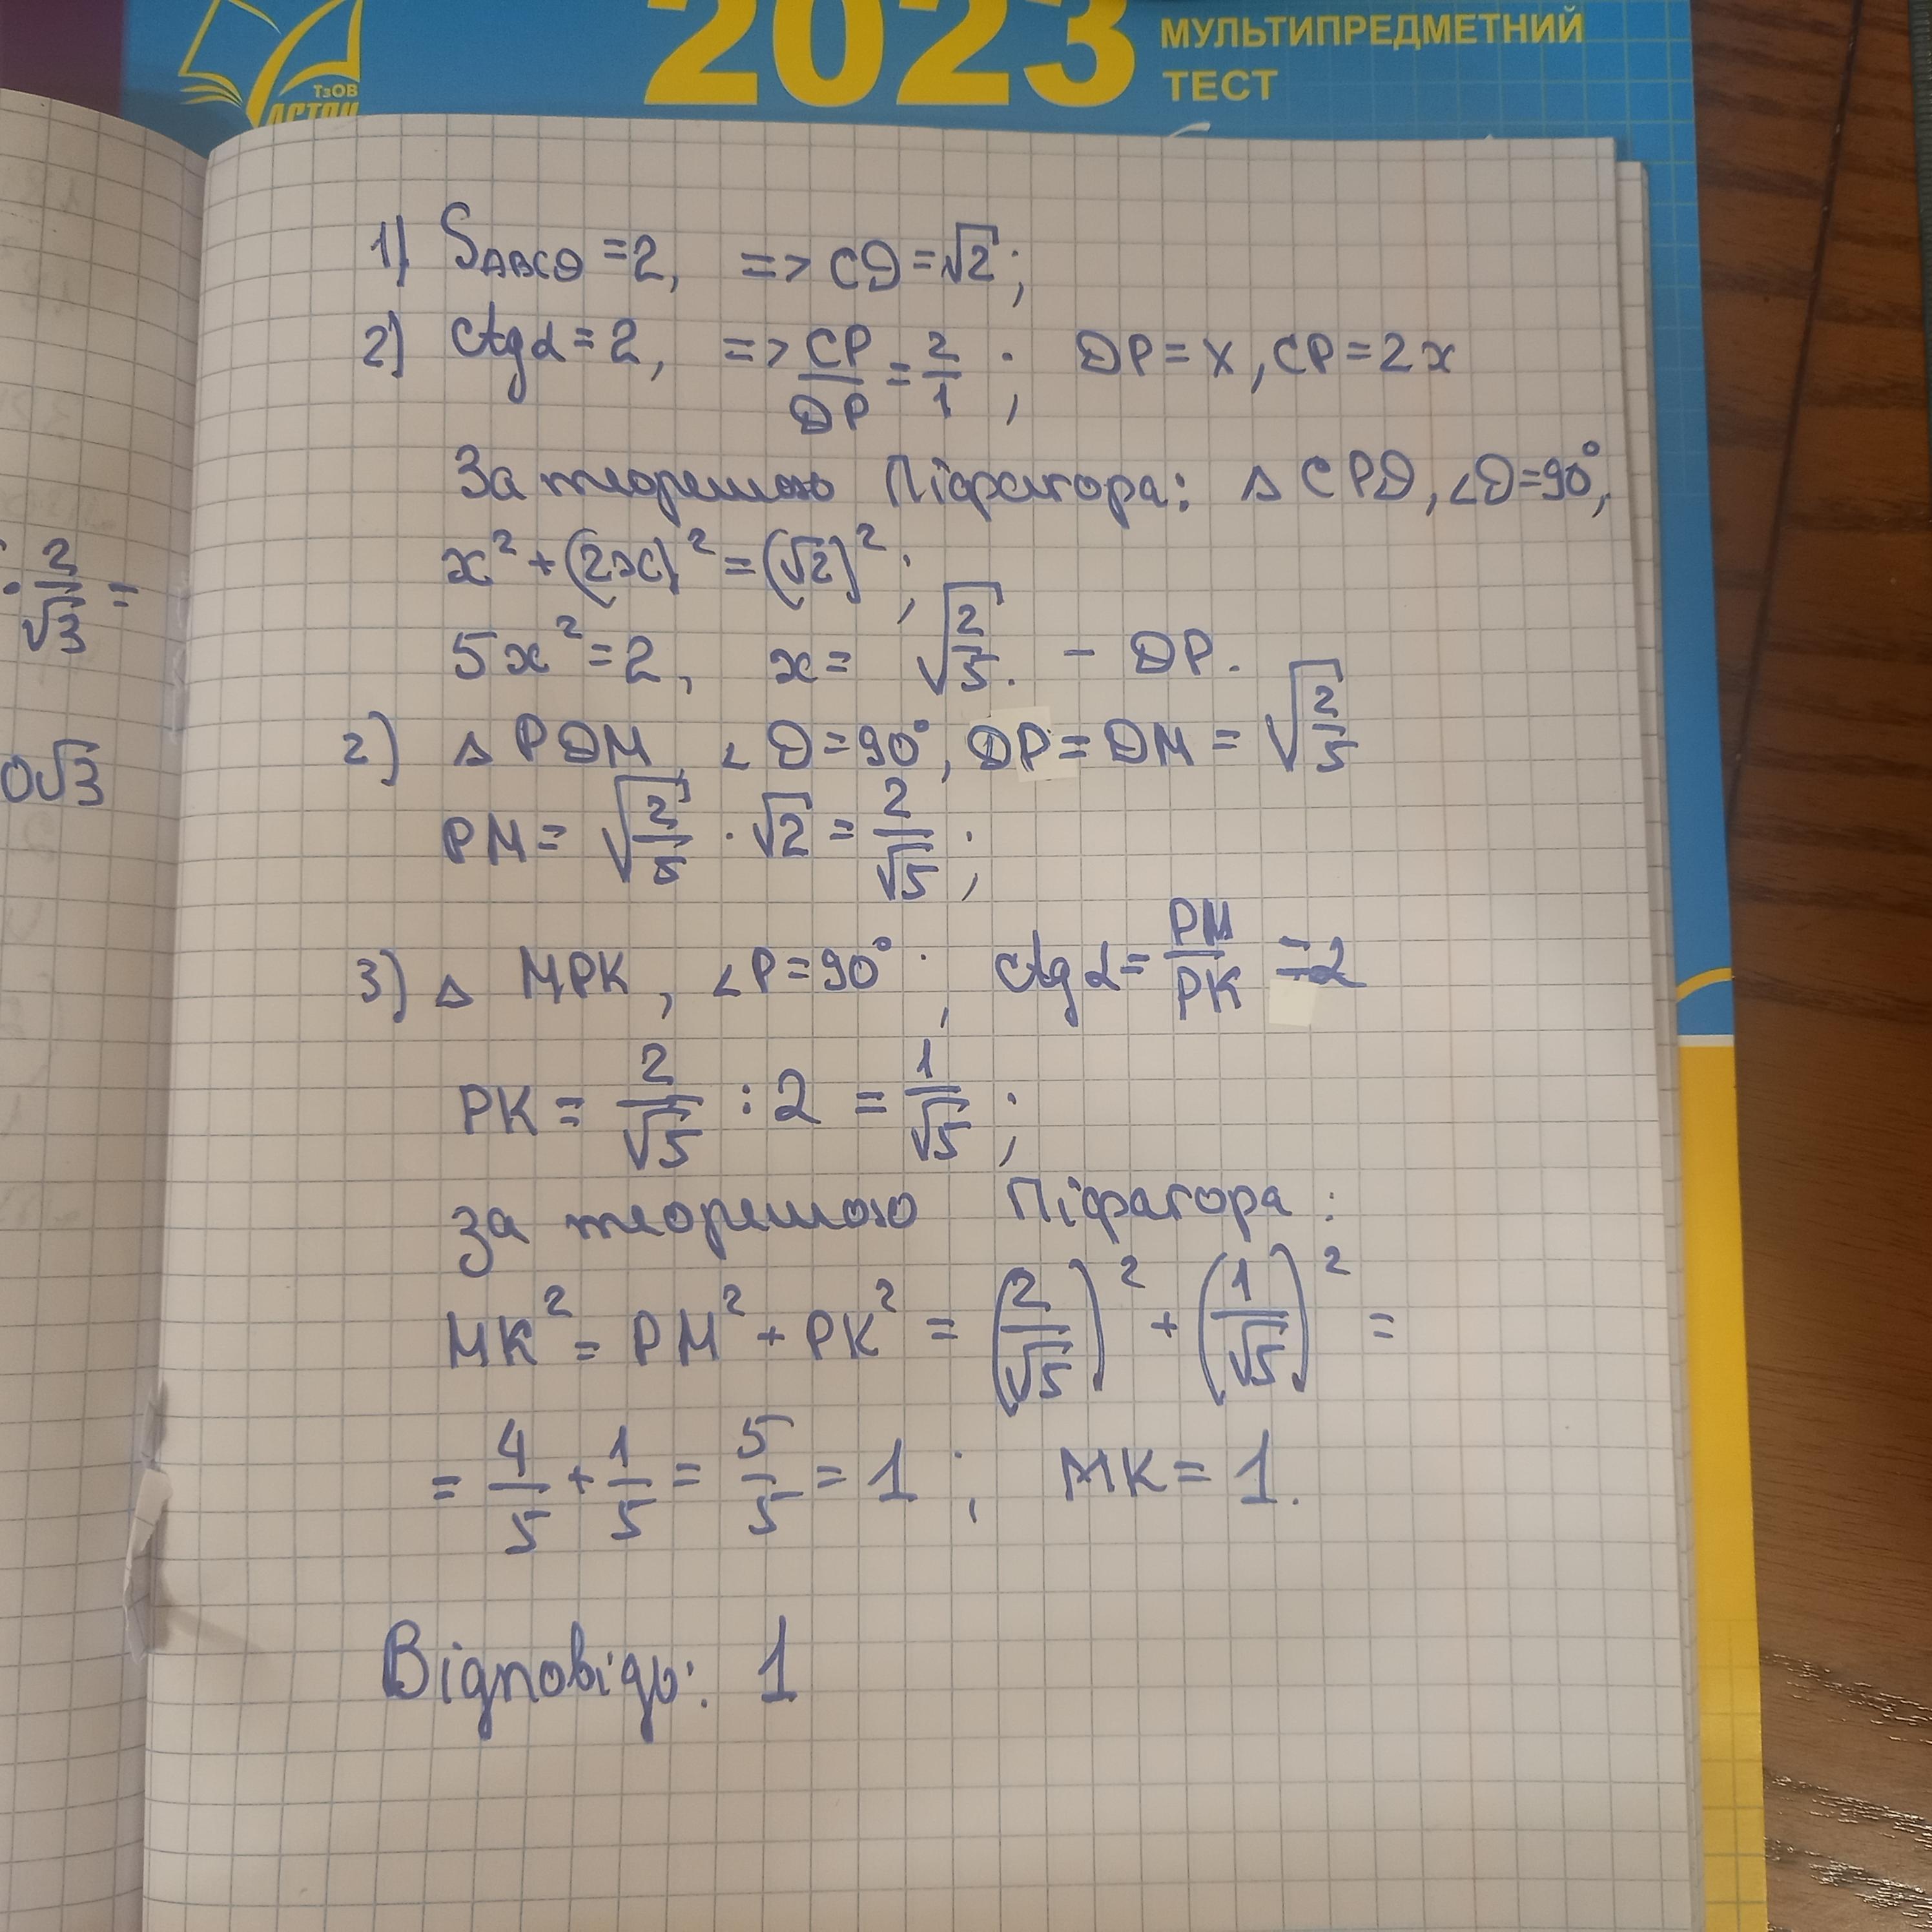 2023
МУЛЬТИПРЕДМЕТНИЙ
ТЕСТ
ТзОВ
АСТОН
1) S_ABCD = 2, => CD = √2;
2) ctgα = 2, => CP/DP = 2/1; DP = x, CP = 2x
За теоремою Піфагора: △ CPD, ∠D = 90°,
x² + (2x)² = (√2)²;
5x² = 2, x = √(2/5). – DP.
2) △ PDM, ∠D = 90°, DP = DM = √(2/5)
PM = √(2/5) · √2 = 2/√5;
3) △ MPK, ∠P = 90°; ctgα = PM/PK = 2
PK = 2/√5 : 2 = 1/√5;
За теоремою Піфагора:
MK² = PM² + PK² = (2/√5)² + (1/√5)² =
= 4/5 + 1/5 = 5/5 = 1; MK = 1.
Відповідь: 1
: 2/√3 =
0√3